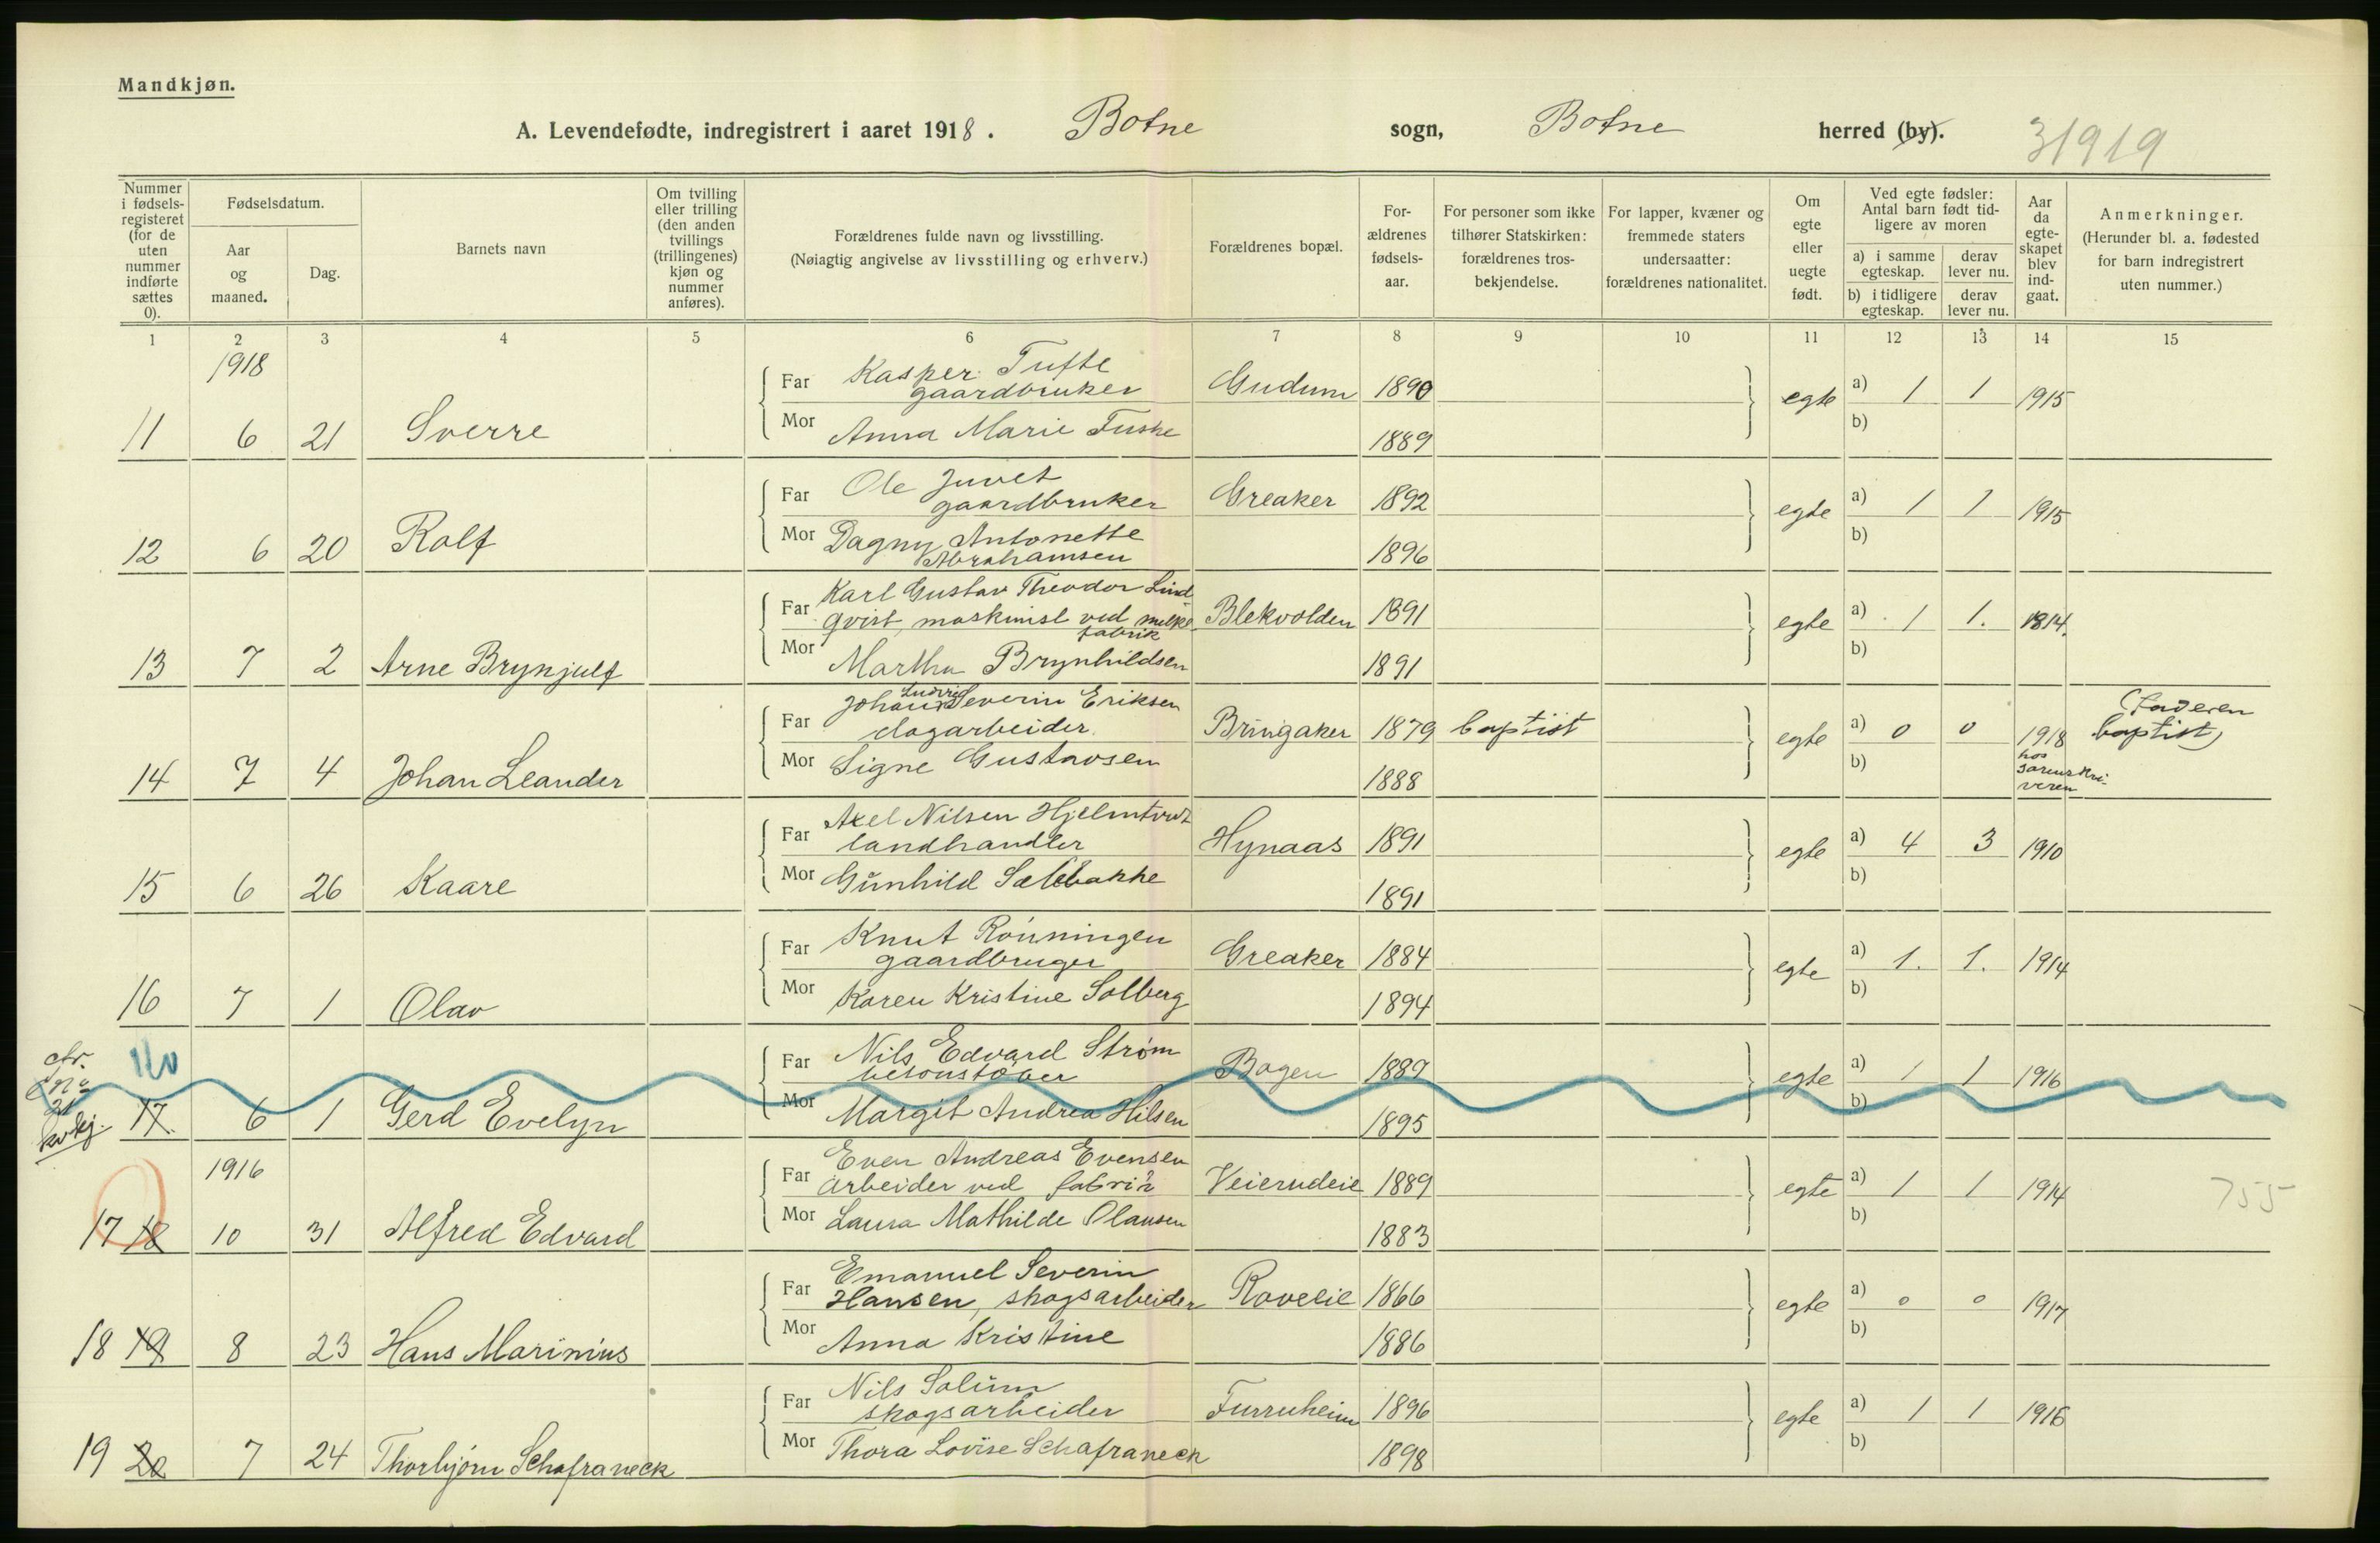 Mandkjøn.
A. Levendefødte, indregistrert i aaret 1918. Botne sogn, Botne herred (by). 31919
Nummer i fødsels-registeret (for de uten nummer indførte sættes 0).
Fødselsdatum.
Aar og maaned.
Dag.
Barnets navn
Om tvilling eller trilling (den anden tvillings (trillingenes) kjøn og nummer anføres).
Forældrenes fulde navn og livsstilling.
(Nøiagtig angivelse av livsstilling og erhverv.)
Forældrenes bopæl.
For-ældrenes fødsels-aar.
For personer som ikke tilhører Statskirken: forældrenes tros-bekjendelse.
For lapper, kvæner og fremmede staters undersaatter: forældrenes nationalitet.
Om egte eller uegte født.
Ved egte fødsler: Antal barn født tid-ligere av moren
a) i samme egteskap. derav lever nu.
b) i tidligere egteskap. derav lever nu.
Aar da egte-skapet blev ind-gaat.
Anmerkninger.
(Herunder bl. a. fødested for barn indregistrert uten nummer.)
1 2 3 4 5 6 7 8 9 10 11 12 13 14 15
1918
Far Kasper Tufte
gaardbruker Gudum 1890 egte a) 1 1 1915
11 6 21 Sverre Mor Anna Marie Fuske 1889 b)
Far Ole Juvet
gaardbruker Greaker 1892 egte a) 1 1 1915
12 6 20 Rolf Mor Dagny Antonette
Abrahamsen 1896 b)
Far Karl Gustav Theodor Lind-
qvist, maskinist ved melke-
fabrik Blekvolden 1891 egte a) 1 1. 1914.
13 7 2 Arne Brynjulf Mor Martha Brynhildsen 1891 b)
Far Johan Ludvig Severin Eriksen
dagarbeider. Bringaker 1879 baptist egte a) 0 0 1918 (Faderen
baptist)
14 7 4 Johan Leander Mor Signe Gustavsen 1888 b) hos
sorenskri-
veren
Far Axel Nilsen Hjelmtvedt
landhandler Hynaas 1891 egte a) 4 3 1910
15 6 26 Kaare Mor Gunhild Sælebakke 1891 b)
Far Knut Rønningen
gaardbruger Greaker 1884 egte a) 1. 1. 1914
16 7 1 Olav Mor Karen Kristine Solberg 1894 b)
Far Nils Edvard Strøm
betonstøber Bogen 1889 egte a) 1 1 1916
cfr.
no
21
kvkj.
17. 6 1 Gerd Evelyn Mor Margit Andrea Hilsen 1895 b)
1916
Far Even Andreas Evensen
arbeider ved fabrik Veierudeie 1889 egte a) 1 1 1914 755
17 18 10 31 Alfred Edvard Mor Laura Mathilde Olausen 1883 b)
Far Emanuel Severin
Hansen, skogsarbeider Roveeie 1866 egte a) 0 0 1917
18 19 8 23 Hans Marinius Mor Anna Kristine 1886 b)
Far Nils Solum
skogsarbeider Furruheim 1896 egte a) 1 1 1916
19 20 7 24 Thorbjørn Schafraneck Mor Thora Lovise Schafraneck 1898 b)